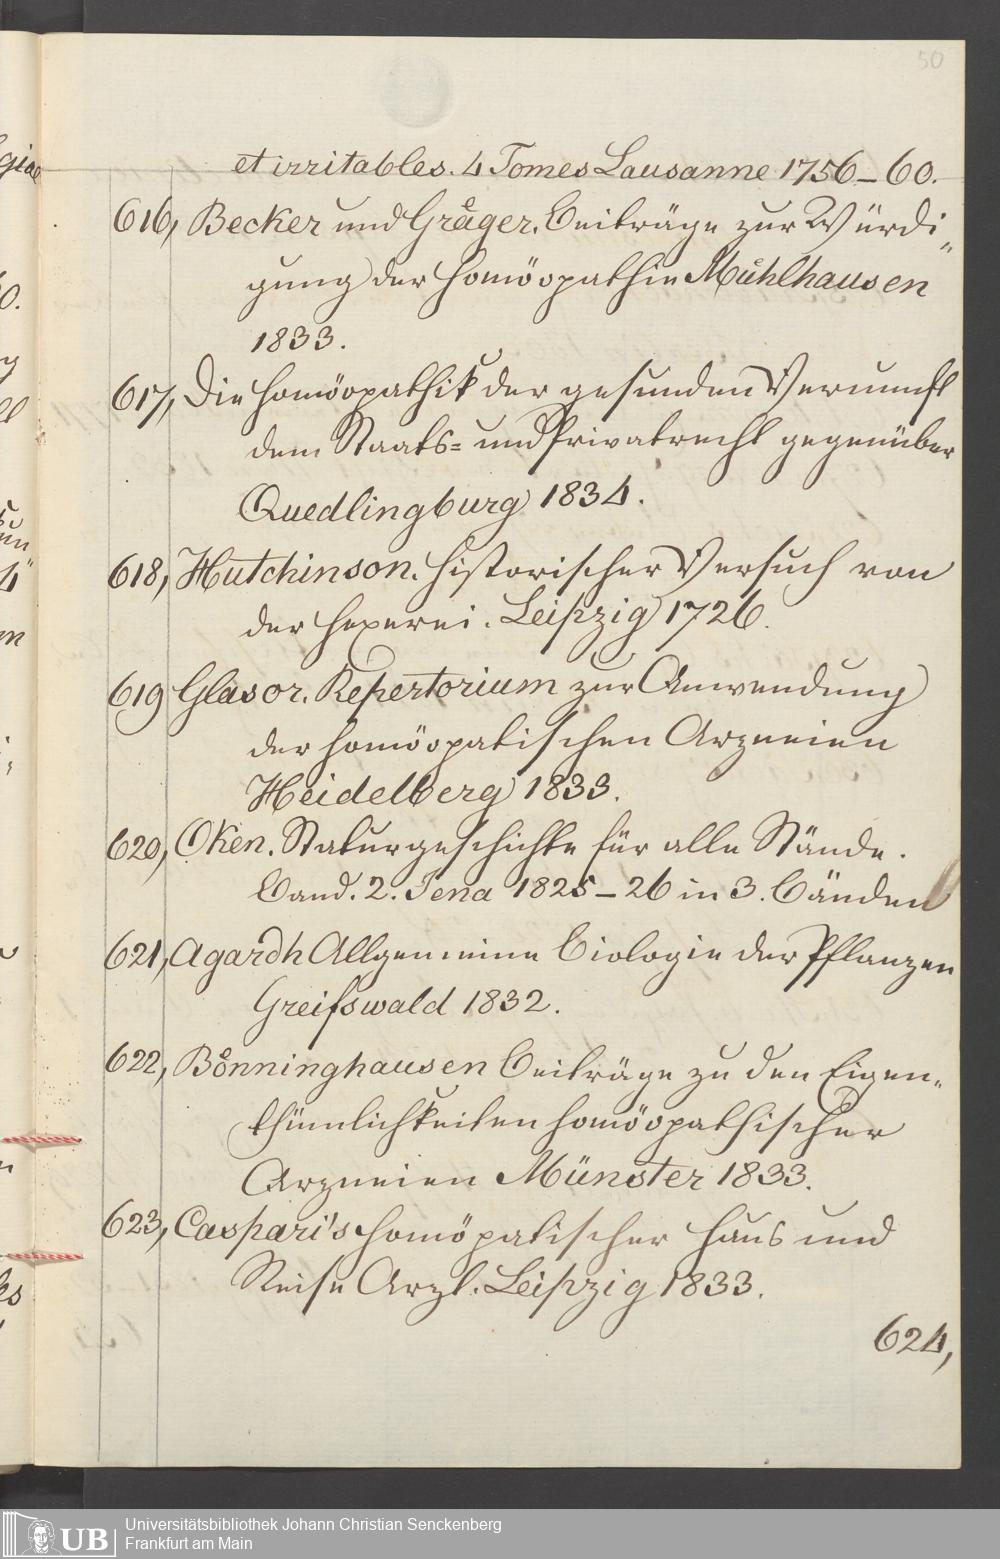 50
et irritables. 4 Tomes Lausanne 1756_60.
616, Becker und Gräger. Beiträge zur Würdi„
gung der Homöopathie Mühlhausen
1833.
617, Die Homöopathik der gesunden Vernunft
dem Staats= und Privatrecht gegenüber
Quedlingburg 1834.
618, Hutchinson. Historischer Versuch von
der Hexerei. Leipzig 1726.
619 Glasor. Repertorium zur Anwendung
der homöopatischen Arzneien
Heidelberg 1833.
620, Oken. Naturgeschichte für alle Stände.
Band. 2. Jena 1825_26 in 3. Bänden
621, Agardh Allgemeine Biologie der Pflanzen
Greifswald 1832.
622, Bönninghausen Beiträge zu den Eigen„
thümlichkeiten homöopathischer
Arzneien Münster 1833.
623, Caspari's homöpatischer Haus und
Reise Arzt. Leipzig 1833.
624,
UB
Universitätsbibliothek Johann Christian Senckenberg
Frankfurt am Main